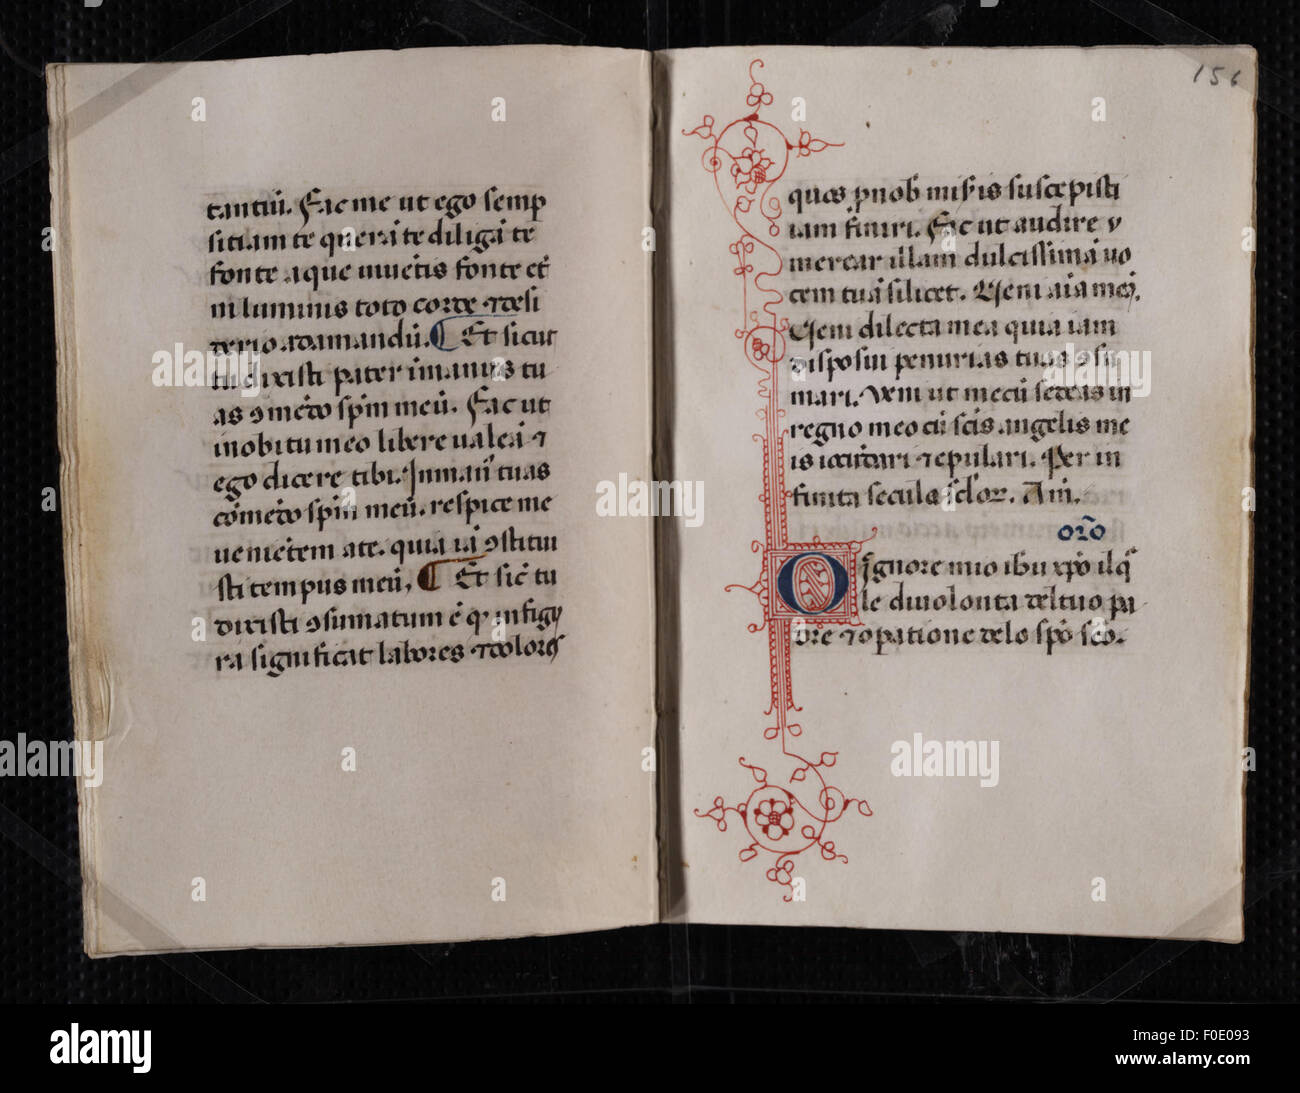 tantũi. Fac me ut ego semp
sitiam te querã te diligã te
fonte aque viuẽtis fonte et̃
ni luminis toto corde ⁊ desi
derio ad amandũ. ¶ Et sicut
tu dixisti pater i manus tu
as ꝯmẽdo spm̃ meũ. Fac ut
in obitu meo libere valeã ⁊
ego dicere tibi. In manũ tuas
cõmẽdo spm̃ meũ. respice me
uenietem a te. quia iã ꝯstitui
sti tempus meũ. ¶ Et sic̃ tu
dixisti ꝯsumatum ẽ qꝫ in figu
ra significat labores ⁊ dolores
156
quos ꝓ nob miſ̃is suscepisti
iam finiri. Fac ut audire
mercar illam dulcissimã uo
cem tuã silicet. Veni aĩa mea.
Veni dilecta mea quia iam
disposui penurias tuas ꝯsu
mari. Veni ut mecũ sedeas in
regno meo cũ scĩs angelis me
is iocũdari ⁊ epulari. Per in
finita secula sclõr. Am̃.
orõ
O signore mio ihu xpõ il q̃
le di uolonta del tuo pa
dre ⁊ opatione de lo spõ scõ.
alamy
Image ID: F0E093
www.alamy.com